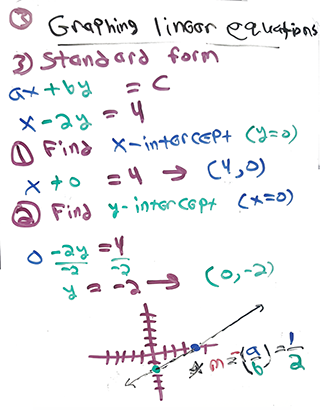 ③ Graphing linear equations
3) Standard form
ax + by = C
x - 2y = 4
① Find x-intercept (y=0)
x + 0 = 4 → (4,0)
② Find y-intercept (x=0)
0 -2y/-2 = 4/-2
y = -2 → (0,-2)
* m = -(a/b) = 1/2